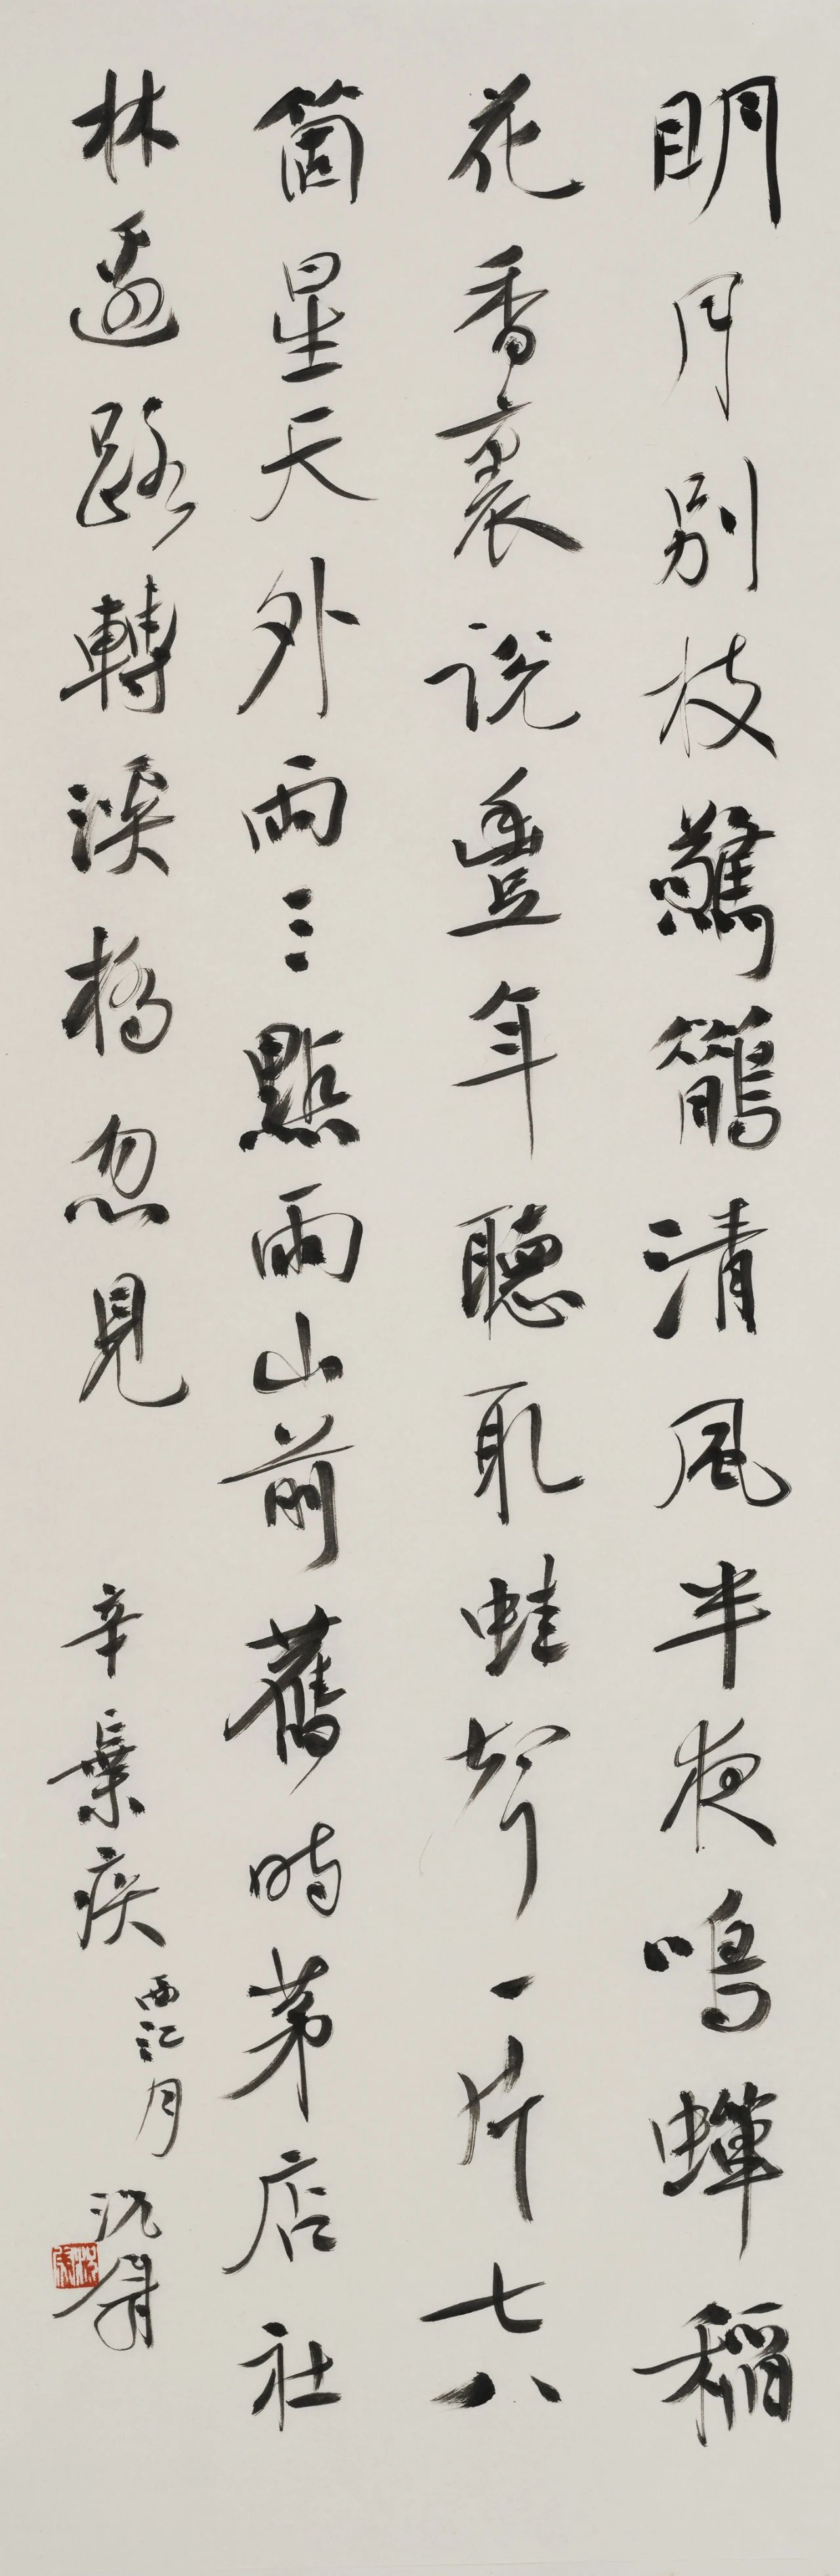 明月別枝驚鵲清風半夜鳴蟬稻
花香裏說豐年聽取蛙聲一片七八
箇星天外兩三點雨山前舊時茅店社
林邊路轉溪橋忽見
辛棄疾
西江月
沈鵬